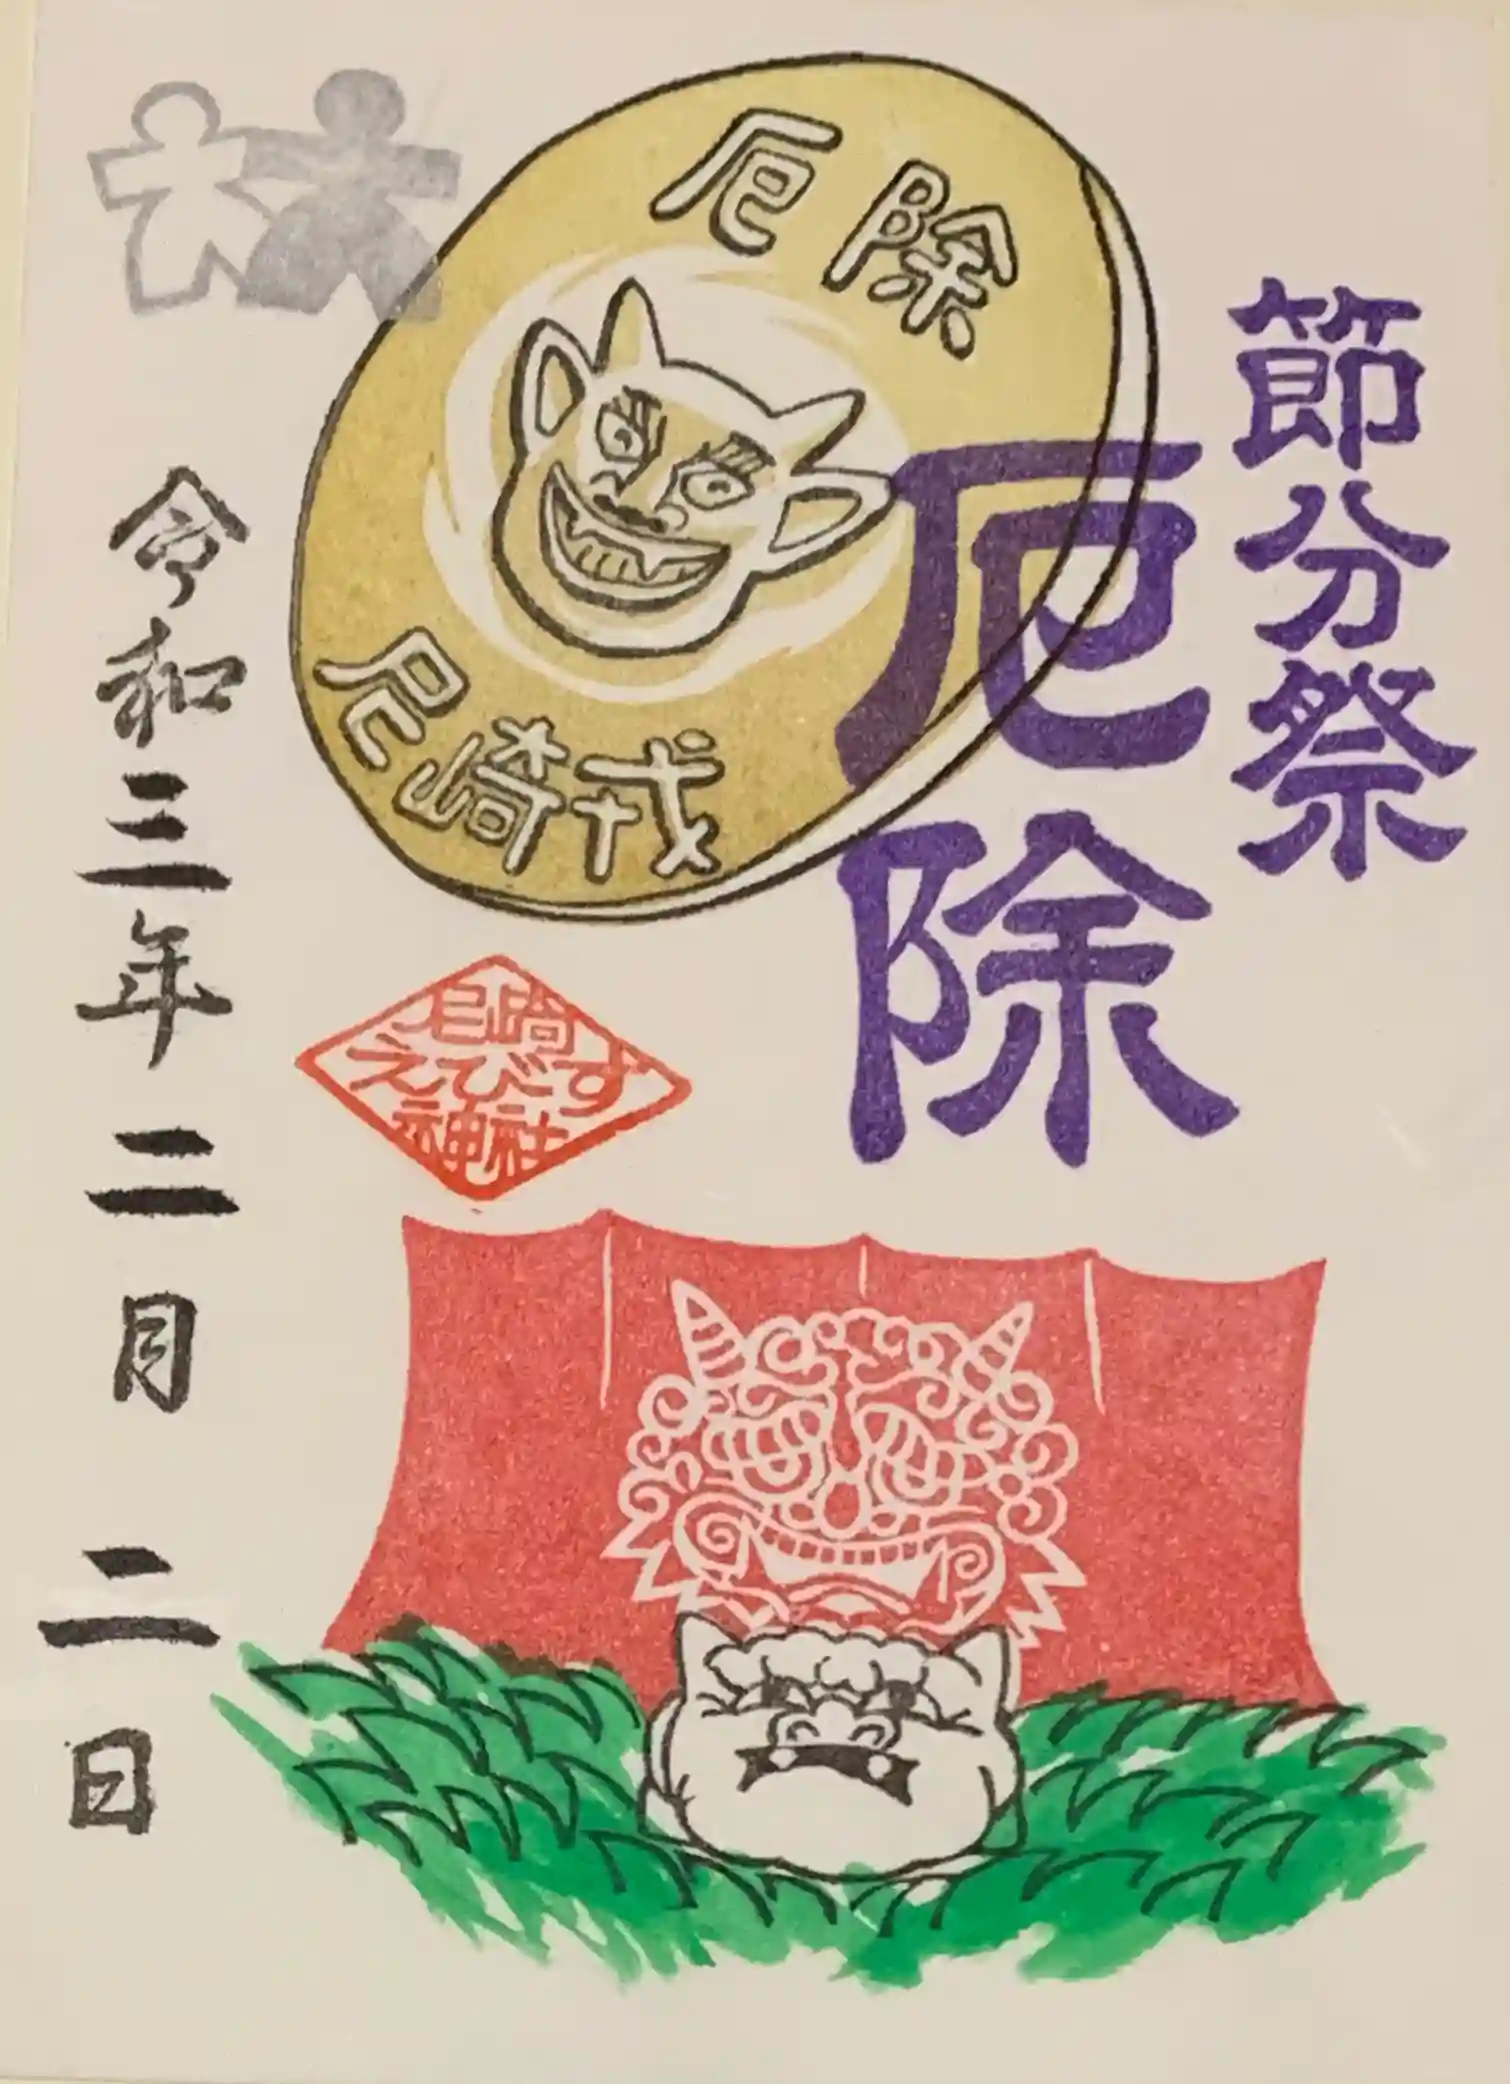 節分祭
厄除
厄除
尼崎戎
尼崎
えびす
神社
令和三年二月二日